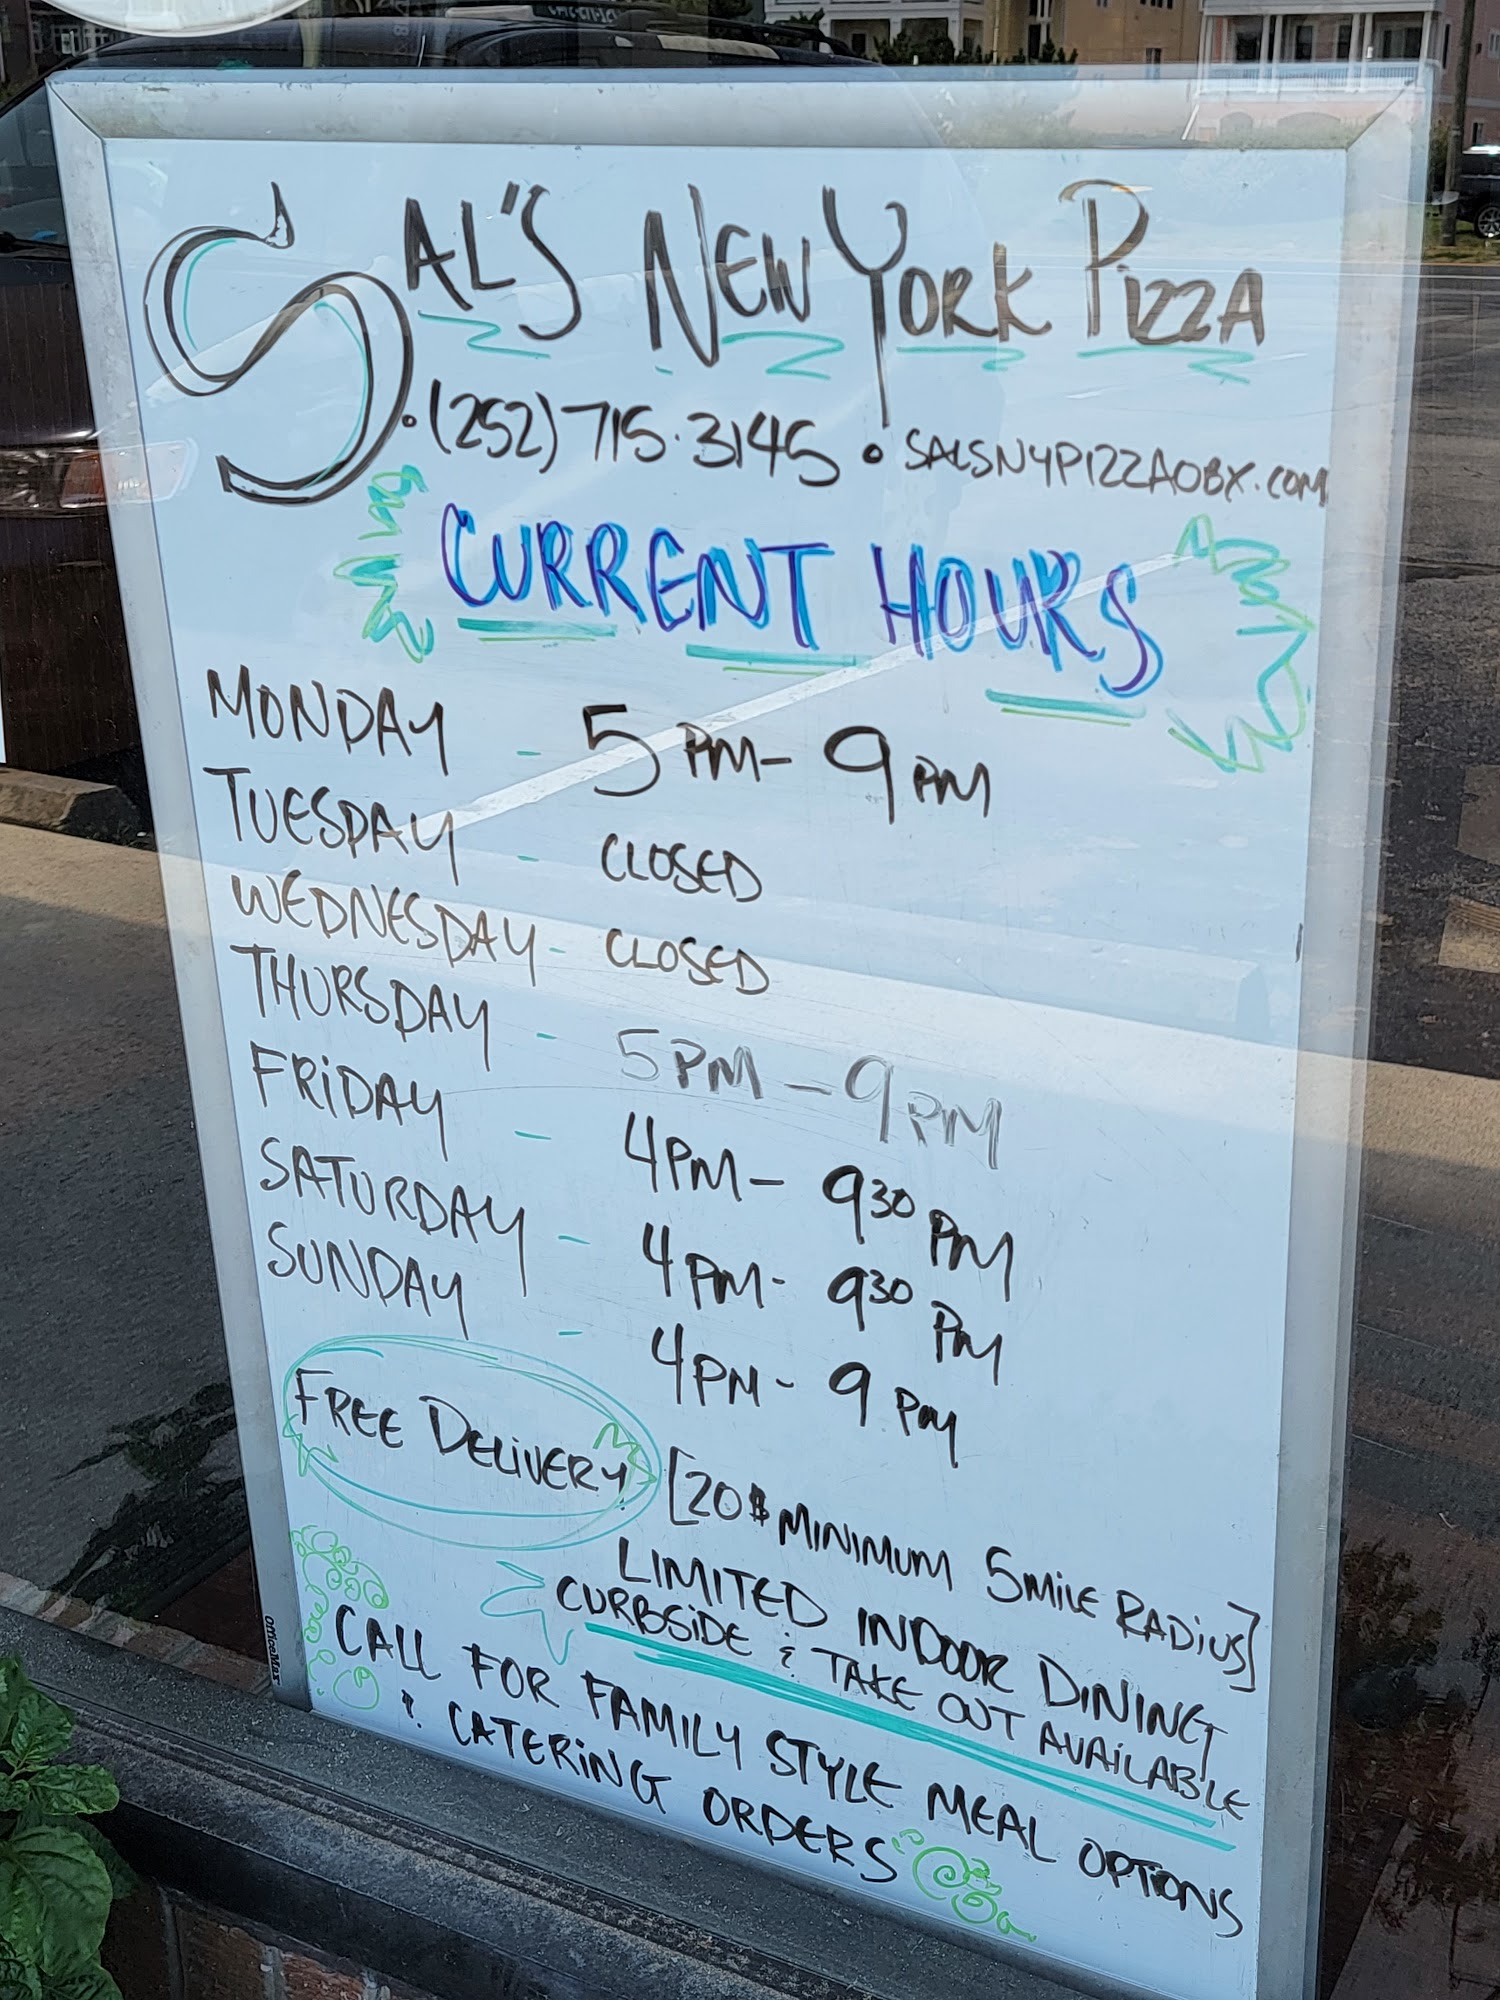 SAL'S NEW YORK PIZZA
• (252) 715·3145 • SALSNYPIZZAOBX.COM
CURRENT HOURS
MONDAY - 5PM - 9PM
TUESDAY - CLOSED
WEDNESDAY - CLOSED
THURSDAY - 5PM - 9PM
FRIDAY - 4PM - 930 PM
SATURDAY - 4PM - 930 PM
SUNDAY - 4PM - 9PM
FREE DELIVERY [20$ MINIMUM 5 MILE RADIUS]
LIMITED INDOOR DINING
CURBSIDE & TAKE OUT AVAILABLE
CALL FOR FAMILY STYLE MEAL OPTIONS
& CATERING ORDERS
OfficeMax